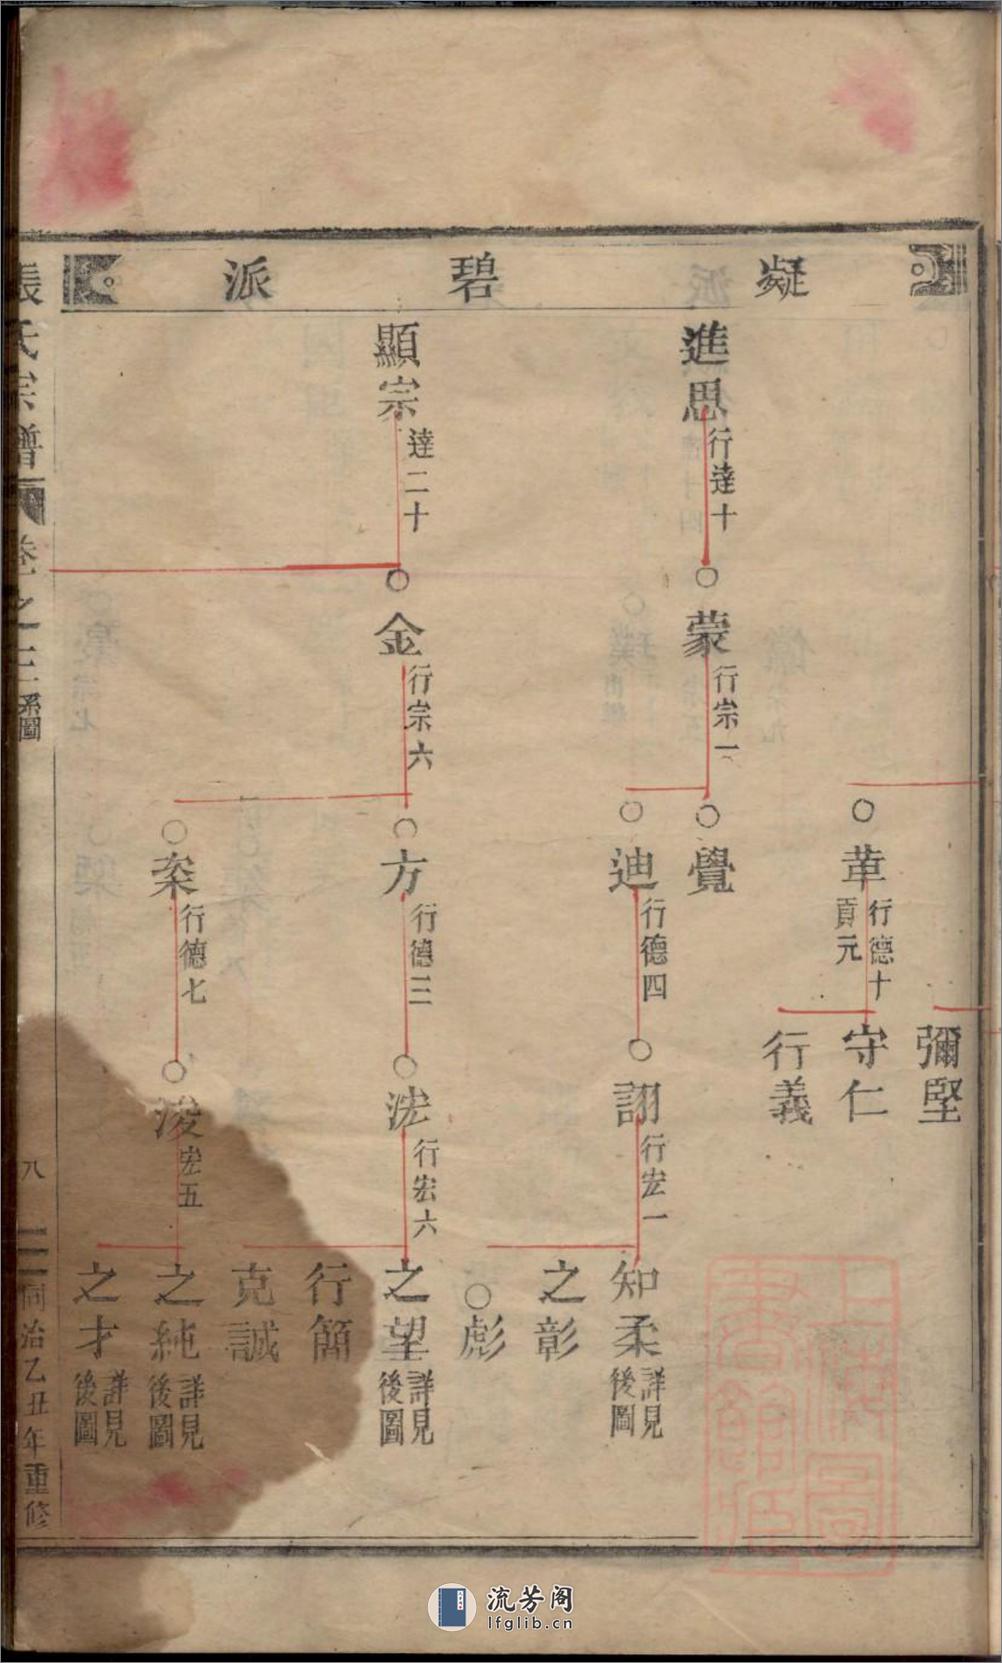 凝碧派
進思
行達十
顯宗
達二十
蒙
行宗一
金
行宗六
革
行德十
貢元
覺
迪
行德四
方
行德三
桼
行德七
彌堅
守仁
行義
詡
行宏一
法
行宏六
浚
宏五
知柔
詳見
後圖
之彰
彪
之望
詳見
後圖
行簡
克誠
之純
詳見
後圖
之才
詳見
後圖
張氏宗譜
卷之三
系圖
八
同治乙丑年重修
流芳阁
lfglib.cn